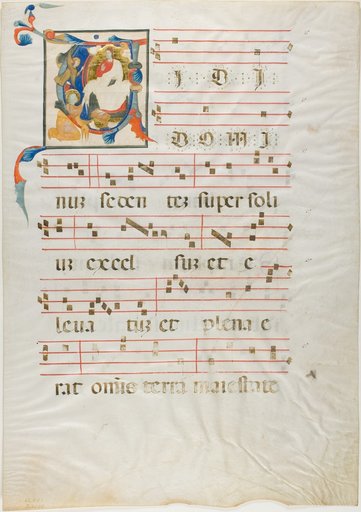 IDI
DOMI
nuʒ seden teʒ super soli
uʒ excel suʒ et e
leua tuʒ et plena e
rat omis terra maiestate